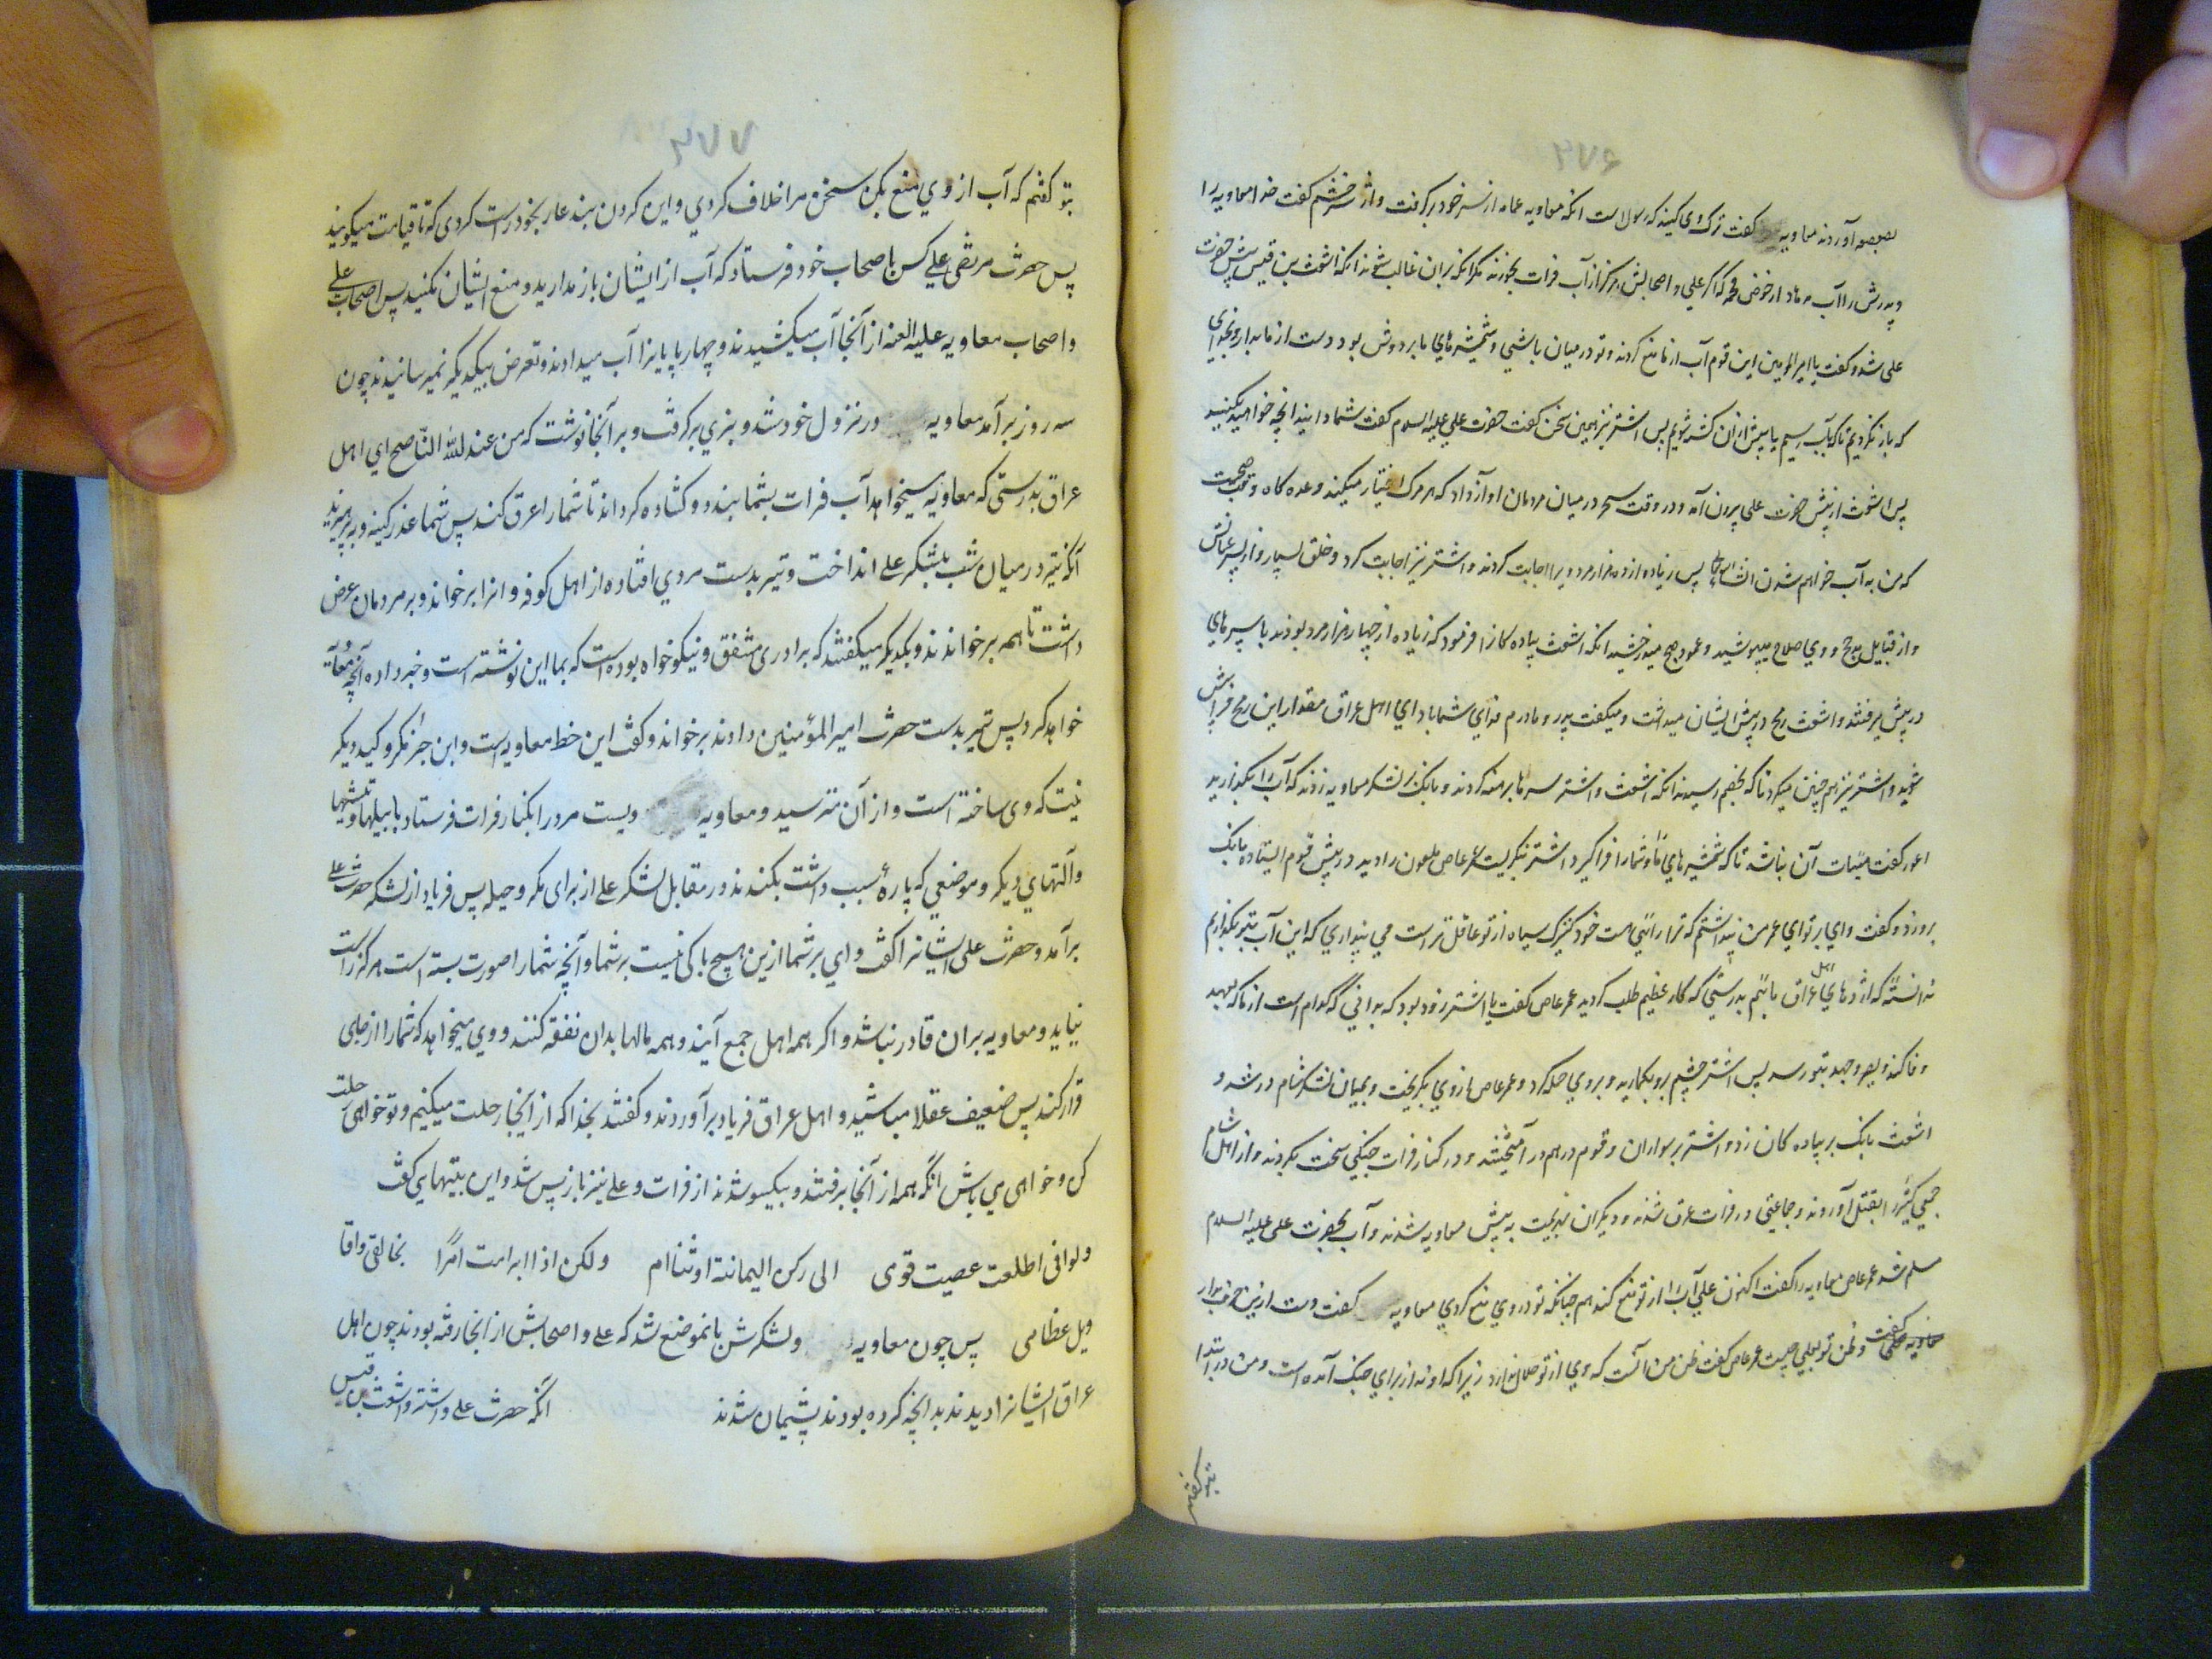 ۳۷۶
بصبصه آوردند معاویه کفت ترک وی کنید که رسولاست انکه معاویه عمامه از سر خود برکرفت و از سر خشم کفت خدا معاویه را
و پدرش را آب مدهاد از حوض محمد که اکر علی و اصحابش هرکز از آب فرات بخورند مکر انکه بران غالب شوند انکه اشعث بن قیس پیش حضرت
علی شد و کفت یا امیر المومنین این قوم آب از ما منع کردند و تو در میان ما باشی و شمشیرهای ما بر دوش بود دست از ما بدار و بخدای
که باز نکردیم تا که بآب رسیم یا پیش ازان کشته شویم پس اشتر نیز همین سخن کفت حضرت علی علیه السلام کفت شما دانید انچه خواهید بکنید
پس اشعث از پیش حضرت علی بیرون آمد و در وقت سحر در میان مردمان او آواز داد که هر مرک اختیار میکنید وعده کاه وقت صبحست
که من به آب خواهم شدن انشاالله پس زیاده از ده هزار مرد ویرا اجابت کردند و اشتر نیز اجابت کرد و خلق بسیار و از پسر عمانش
و از قبایل مذحج و وی صلاح بپوشید و عمود صبح میدرخشید انکه اشعث پیاده کانرا فرمود که زیاده از چهار هزار مرد بودند با سپرهای
در پیش برفتند و اشعث رمح در پیش ایشان میداشت و میکفت پدر و مادرم فدای شما باد ای اهل عراق مقدار این رمح فراپیش
شوید و اشتر نیز هم چنین میکرد تا که بخصم رسیدند انکه اشعث و اشتر سرها برهنه کردند و بانک بر لشکر معاویه زدند که آب را بکذارید
اعور کفت هیهات آن نباشد تا که شمشیرهای ما و شما را فرا کیرد اشتر بنکریست عمر عاص ملعون را دید در پیش قوم ایستاده بانک
برو زد و کفت وای بر تو ای عمر من پنداشتم که ترا رایی هست خود کنیزک سیاه از تو عاقل تر است می پنداری که این آب بتو بکذاریم
ندانستهٔ که اژدهای اهل عراق مائیم بدرستی که کار عظیم طلب کردید عمر عاص کفت یا اشتر زود بود که بدانی که کدام است از ما که بعهد
وفا کند و بصبر و جهد بتو رسد پس اشتر چشم برو بکمارید و بر وی حمله کرد و عمر عاص از وی بکریخت و بمیان لشکر شام در شد و
اشعث بانک بر پیاده کان زد و اشتر بر سواران و قوم در هم در آمیختند و در کنار فرات جنکی سخت بکردند و از اهل شام
جمعی کثیر را بقتل آوردند و جماعتی در فرات غرق شدند و دیکران بهزیمت به پیش معاویه شدند و آب بحضرت علی علیه السلام
مسلم شد عمر عاص معاویه را کفت اکنون علی آب را از تو منع کند هم چنانکه تو در وی منع کردی معاویه کفت دست ازین حرف بدار
کفت و ظن تو بعلی چیست عمر عاص کفت ظن من انست که وی از تو حلال ندارد زیرا که او نه از برای جنک آمده است و من در ابتدا
بتو کفتم
۳۷۷
بتو کفتم که آب از وی منع مکن سخن مرا خلاف کردی و این کردن بند عار بخود راست کردی که تا قیامت میکویند
پس حضرت مرتضی علی کس باصحاب خود فرستاد که آب از ایشان باز مدارید و منع ایشان نکنید پس اصحاب علی
و اصحاب معاویه علیه العنه از آنجا آب میکشیدند و چهار پایانرا آب میدادند و تعرض بیکدیکر نمیرسانیدند چون
سه روز بر آمد معاویه در نزول خود شد و تیری برکرفت و بر آنجا نوشت که من عبد الله النّاصح ای اهل
عراق بدرستی که معاویه میخواهد آب فرات بشما بندد و کشاده کرداند تا شما را غرق کند پس شما عذر کنید و بپرهیزید
آنکه تیر در میان شب بلشکر علی انداخت و تیر بدست مردی افتاده از اهل کوفه و انرا بر خواند و بر مردمان عرض
داشت تا همه بر خواندند و بکدیکر میکفتند که برادری مشفق و نیکو خواه بوده است که بما این نوشته است و خبر داده آنچه معویه
خواهد کرد پس تیر بدست حضرت امیر المؤمنین دادند بر خواند و کفت این خط معاویه است و این جز مکر و کید دیکر
نیست که وی ساخته است و از آن مترسید و معاویه دویست مرد را بکنار فرات فرستاد با بیلها و تیشها
و آلتهای دیکر و موضعی که پارهٔ سبب داشت بکندند در مقابل لشکر علی از برای مکر و حیله پس فریاد از لشکر حضرت علی
برآمد و حضرت علی ایشانرا کفت وای بر شما ازین هیچ باکی نیست بر شما و آنچه شما را صورت بسته است هرکز راست
نیاید و معاویه بران قادر نباشد و اکر همه اهل جمع آیند و همه مالها بدان نفقه کنند و وی میخواهد که شما را از جای
قرار کند پس ضعیف عقلا مباشید و اهل عراق فریاد بر آوردند و کفتند بخدا که از اینجا رحلت میکنیم و تو خواهی رحلت
کن و خواهی می باش انکه همه از آنجا برفتند و بیکسو شدند از فرات و علی نیز باز پس شد و این بیتهای کفت
ولوانی اطلعت عصیت قومی الی رکن الیمانة او شام ولکن اذا ابرامت امرًا نخالفی واقا
ویل عظامی پس چون معاویه ولشکرش بانموضع شد که علی و اصحابش از انجا رفته بودند چون اهل
عراق ایشانرا دیدند بدانچه کرده بودند پشیمان شدند آنکه حضرت علی و اشتر و اشعث بن قیس